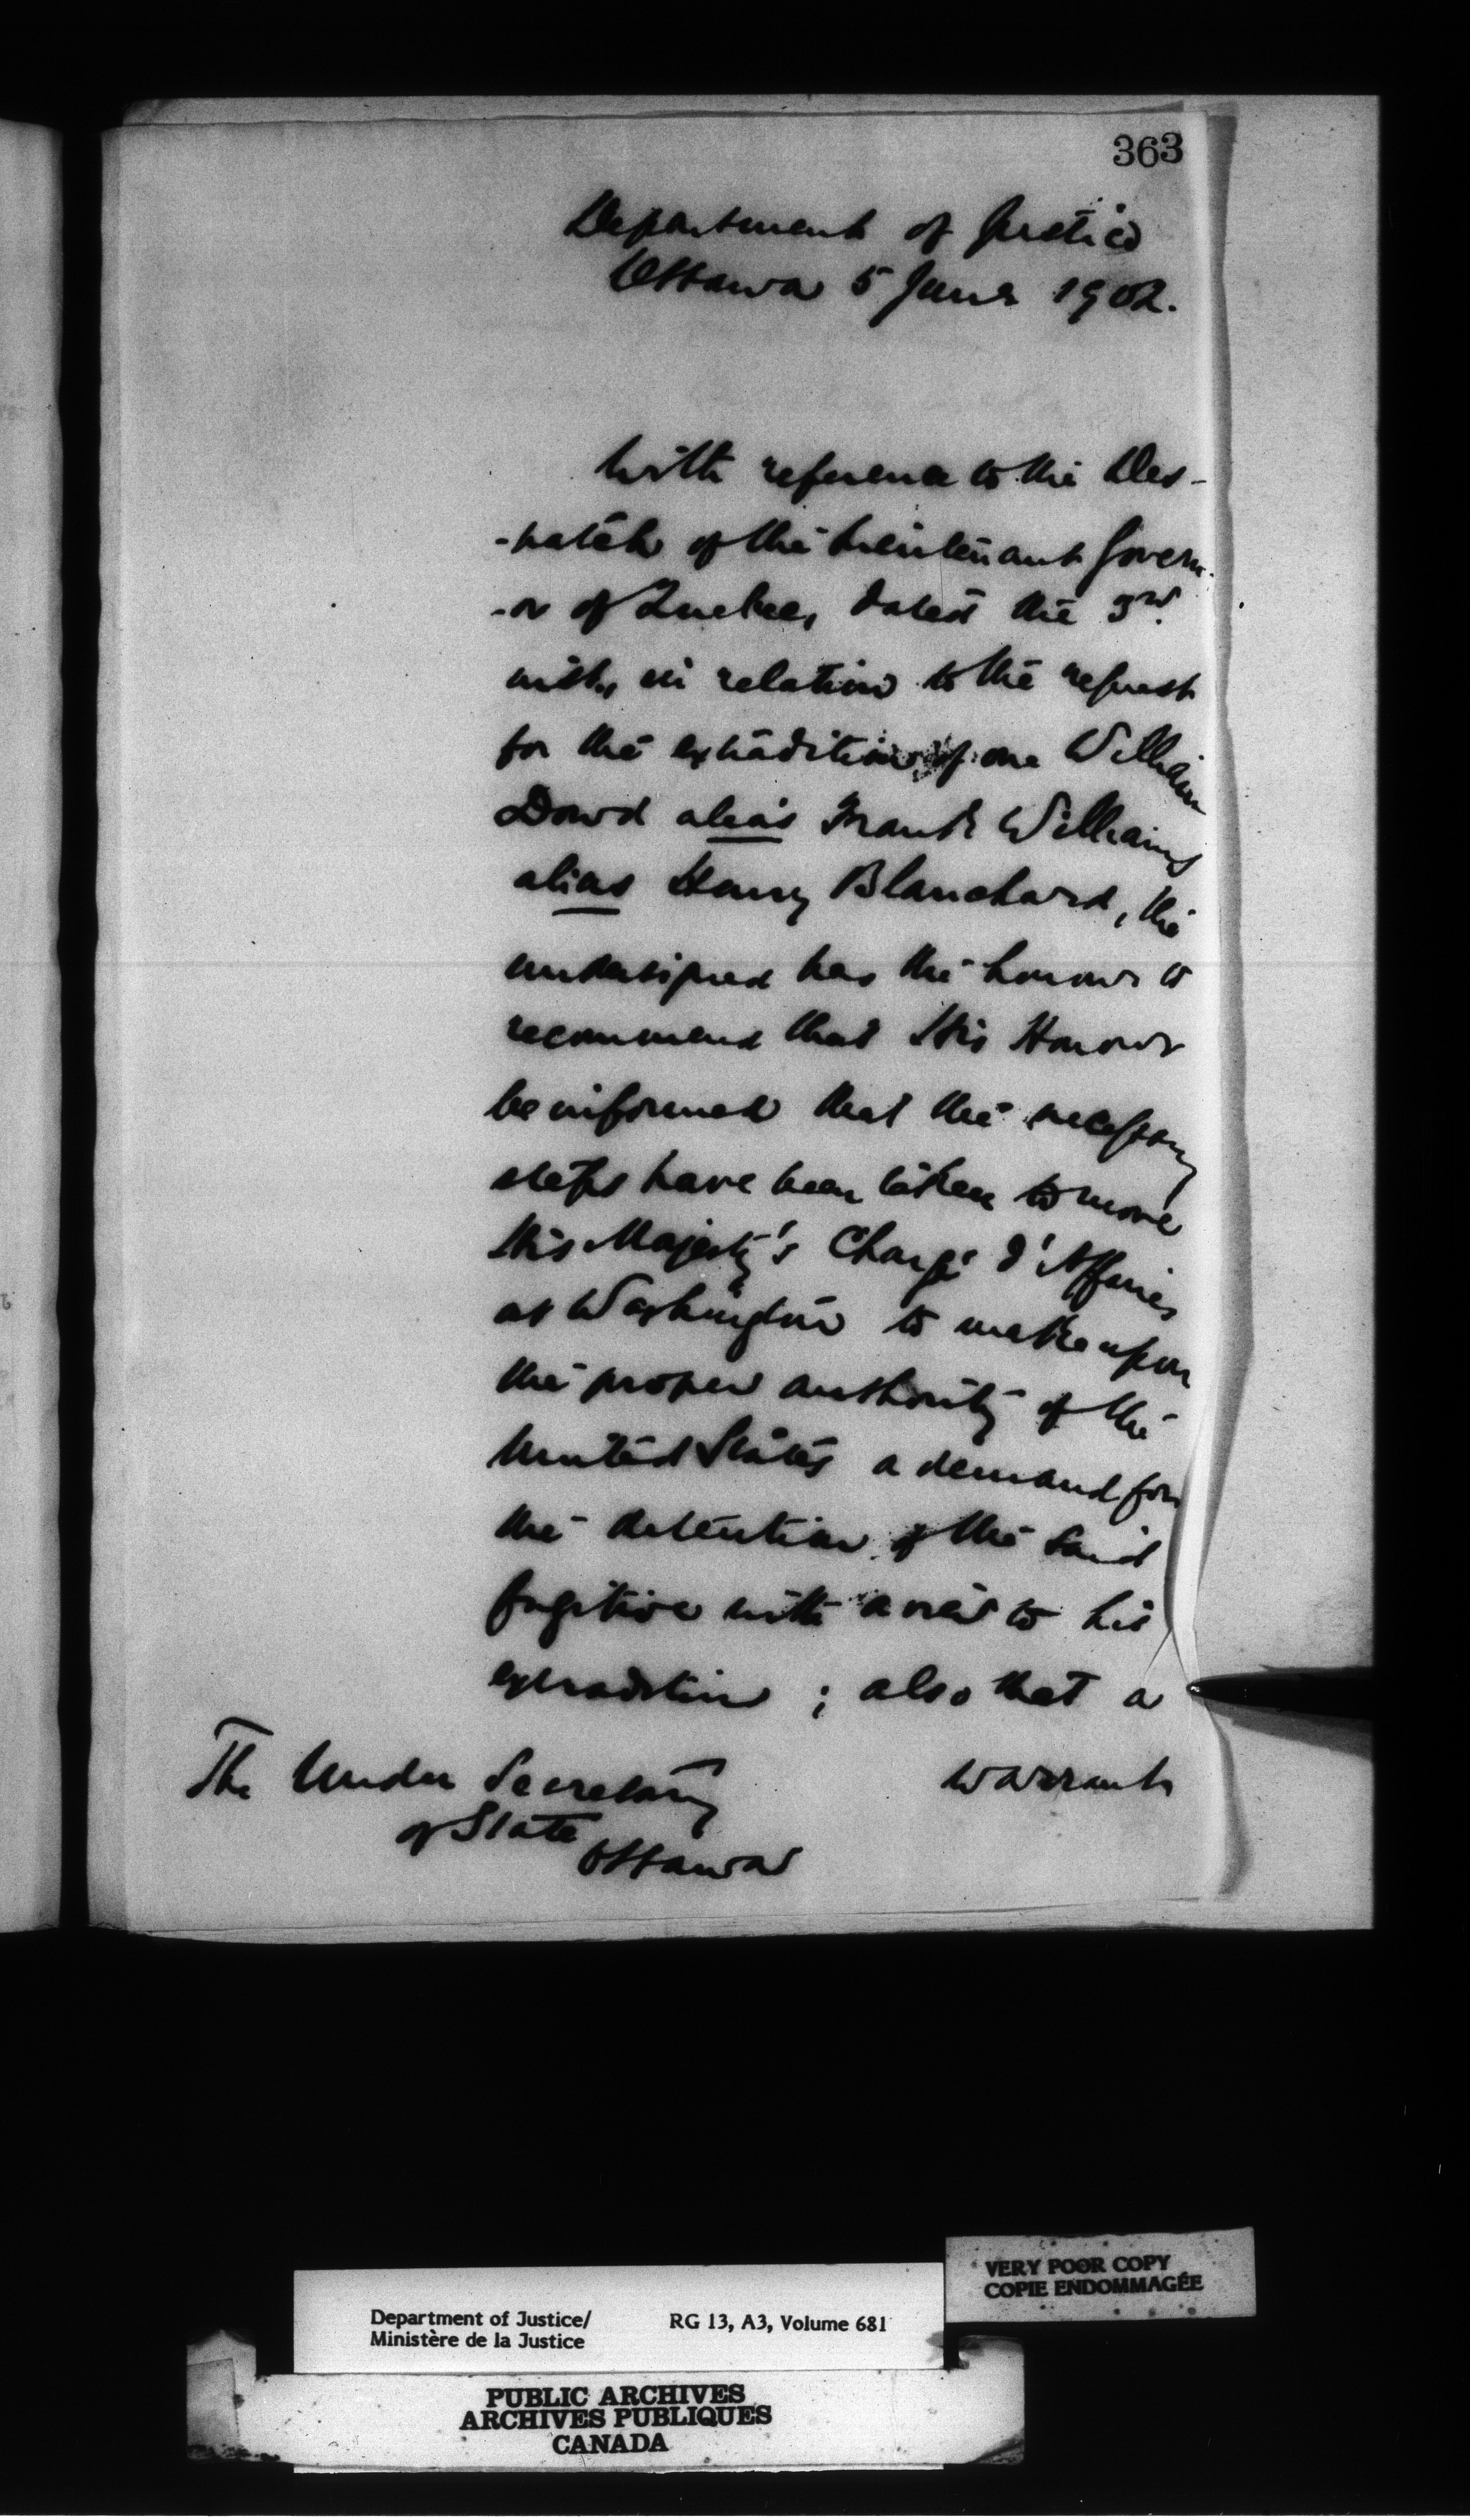 363
Department of Justice
Ottawa 5 June 1902.
With reference to the Des-
-patch of the Lieutenant Govern-
-or of Quebec, dated the 3rd.
inst., in relation to the request
for the extradition of one William
Dowd alias Frank Williams
alias Harry Blanchard, the
undersigned has the honour to
recommend that His Honour
be informed that the necessary
steps have been taken to move
His Majesty's Chargé d'Affaires
at Washington to make upon
the proper authority of the
United States a demand for
the detention of the said
fugitive with a view to his
extradition ; also that a
warrant
The Under Secretary
of State
Ottawa
VERY POOR COPY
COPIE ENDOMMAGÉE
Department of Justice/ RG 13, A3, Volume 681
Ministère de la Justice
PUBLIC ARCHIVES
ARCHIVES PUBLIQUES
CANADA